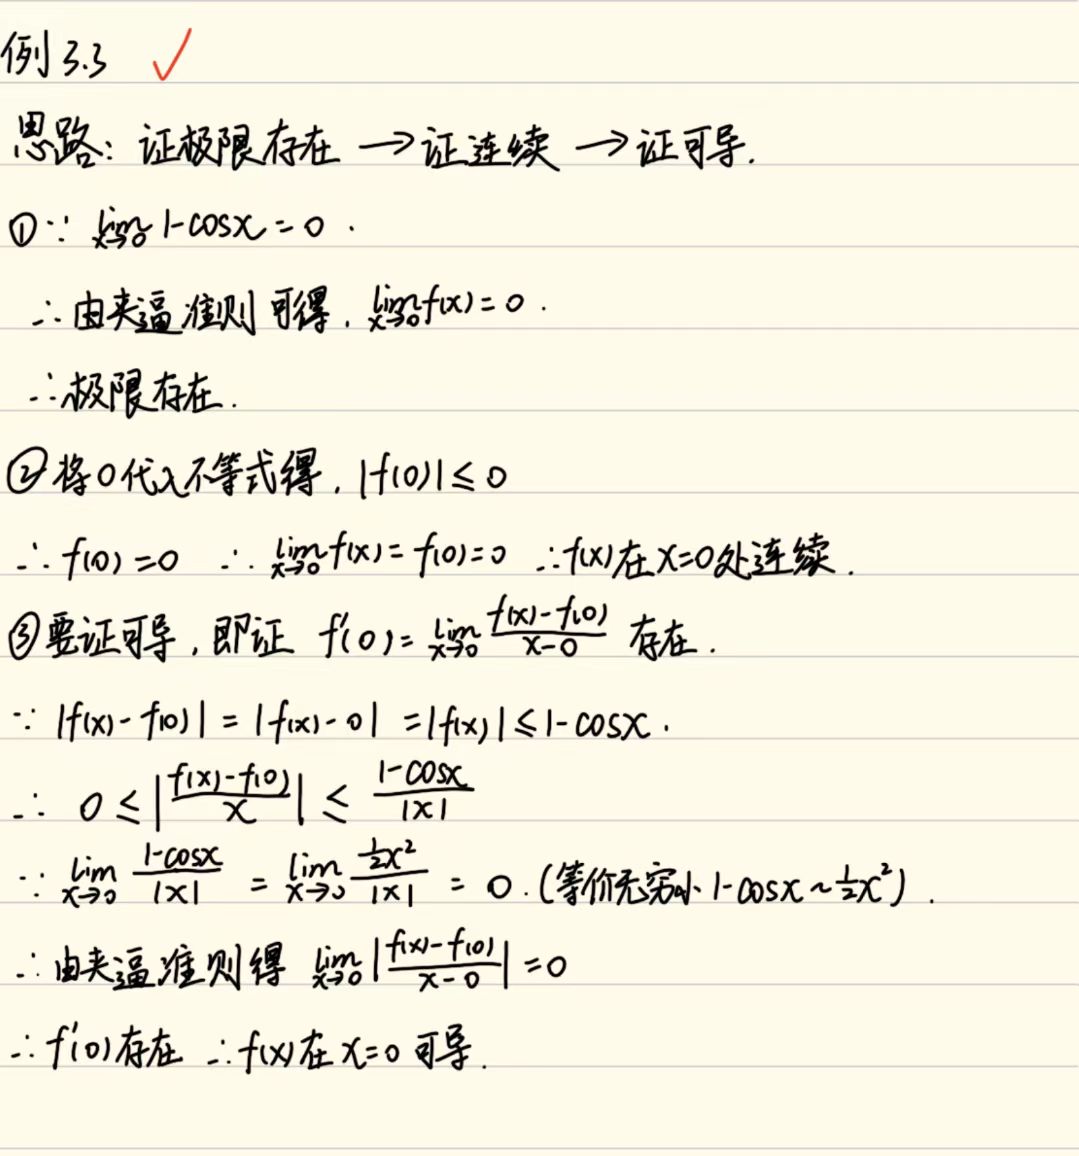 例3.3 ✓
思路: 证极限存在 → 证连续 → 证可导.
①∵ lim_{x→0} 1-cosx = 0 .
∴ 由夹逼准则可得, lim_{x→0} f(x) = 0 .
∴ 极限存在.
② 将0代入不等式得, |f(0)| ≤ 0
∴ f(0) = 0 ∴ lim_{x→0} f(x) = f(0) = 0 ∴ f(x)在x=0处连续.
③ 要证可导, 即证 f'(0) = lim_{x→0} \frac{f(x)-f(0)}{x-0} 存在.
∵ |f(x)-f(0)| = |f(x)-0| = |f(x)| ≤ 1-cosx .
∴ 0 ≤ |\frac{f(x)-f(0)}{x}| ≤ \frac{1-cosx}{|x|}
∵ lim_{x→0} \frac{1-cosx}{|x|} = lim_{x→0} \frac{\frac{1}{2}x^2}{|x|} = 0 . (等价无穷小 1-cosx ~ \frac{1}{2}x^2) .
∴ 由夹逼准则得 lim_{x→0} |\frac{f(x)-f(0)}{x-0}| = 0
∴ f'(0)存在 ∴ f(x)在x=0可导.